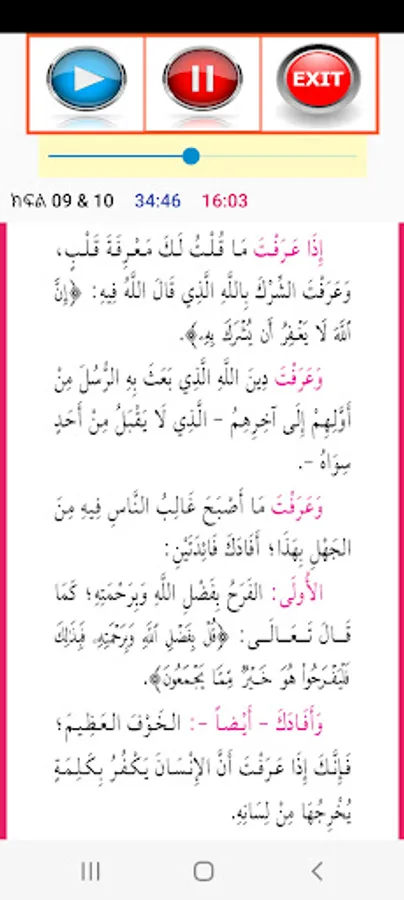 EXIT
ክፍል 09 & 10 34:46 16:03
إِذَا عَرَفْتَ مَا قُلْتُ لَكَ مَعْرِفَةَ قَلْبٍ،
وَعَرَفْتَ الشِّرْكَ بِاللَّهِ الَّذِي قَالَ اللَّهُ فِيهِ: ﴿إِنَّ
اللَّهَ لَا يَغْفِرُ أَن يُشْرَكَ بِهِ﴾.
وَعَرَفْتَ دِينَ اللَّهِ الَّذِي بَعَثَ بِهِ الرُّسُلَ مِنْ
أَوَّلِهِمْ إِلَى آخِرِهِمُ - الَّذِي لَا يَقْبَلُ مِنْ أَحَدٍ
سِوَاهُ -.
وَعَرَفْتَ مَا أَصْبَحَ غَالِبُ النَّاسِ فِيهِ مِنَ
الجَهْلِ بِهَذَا؛ أَفَادَكَ فَائِدَتَيْنِ:
الأُولَى: الفَرَحُ بِفَضْلِ اللَّهِ وَبِرَحْمَتِهِ؛ كَمَا
قَـالَ تَـعَـالَـى: ﴿قُلْ بِفَضْلِ اللَّهِ وَبِرَحْمَتِهِ فَبِذَلِكَ
فَلْيَفْرَحُوا هُوَ خَيْرٌ مِّمَّا يَجْمَعُونَ﴾.
وَأَفَادَكَ - أَيْضاً -: الخَوْفَ العَظِيمَ؛
فَإِنَّكَ إِذَا عَرَفْتَ أَنَّ الإِنْسَانَ يَكْفُرُ بِكَلِمَةٍ
يُخْرِجُهَا مِنْ لِسَانِهِ.